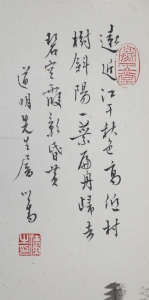 遠近江干秋色高低村
樹斜陽一葉扁舟歸去
碧空霞彩昏黃
道明先生屬 心畬